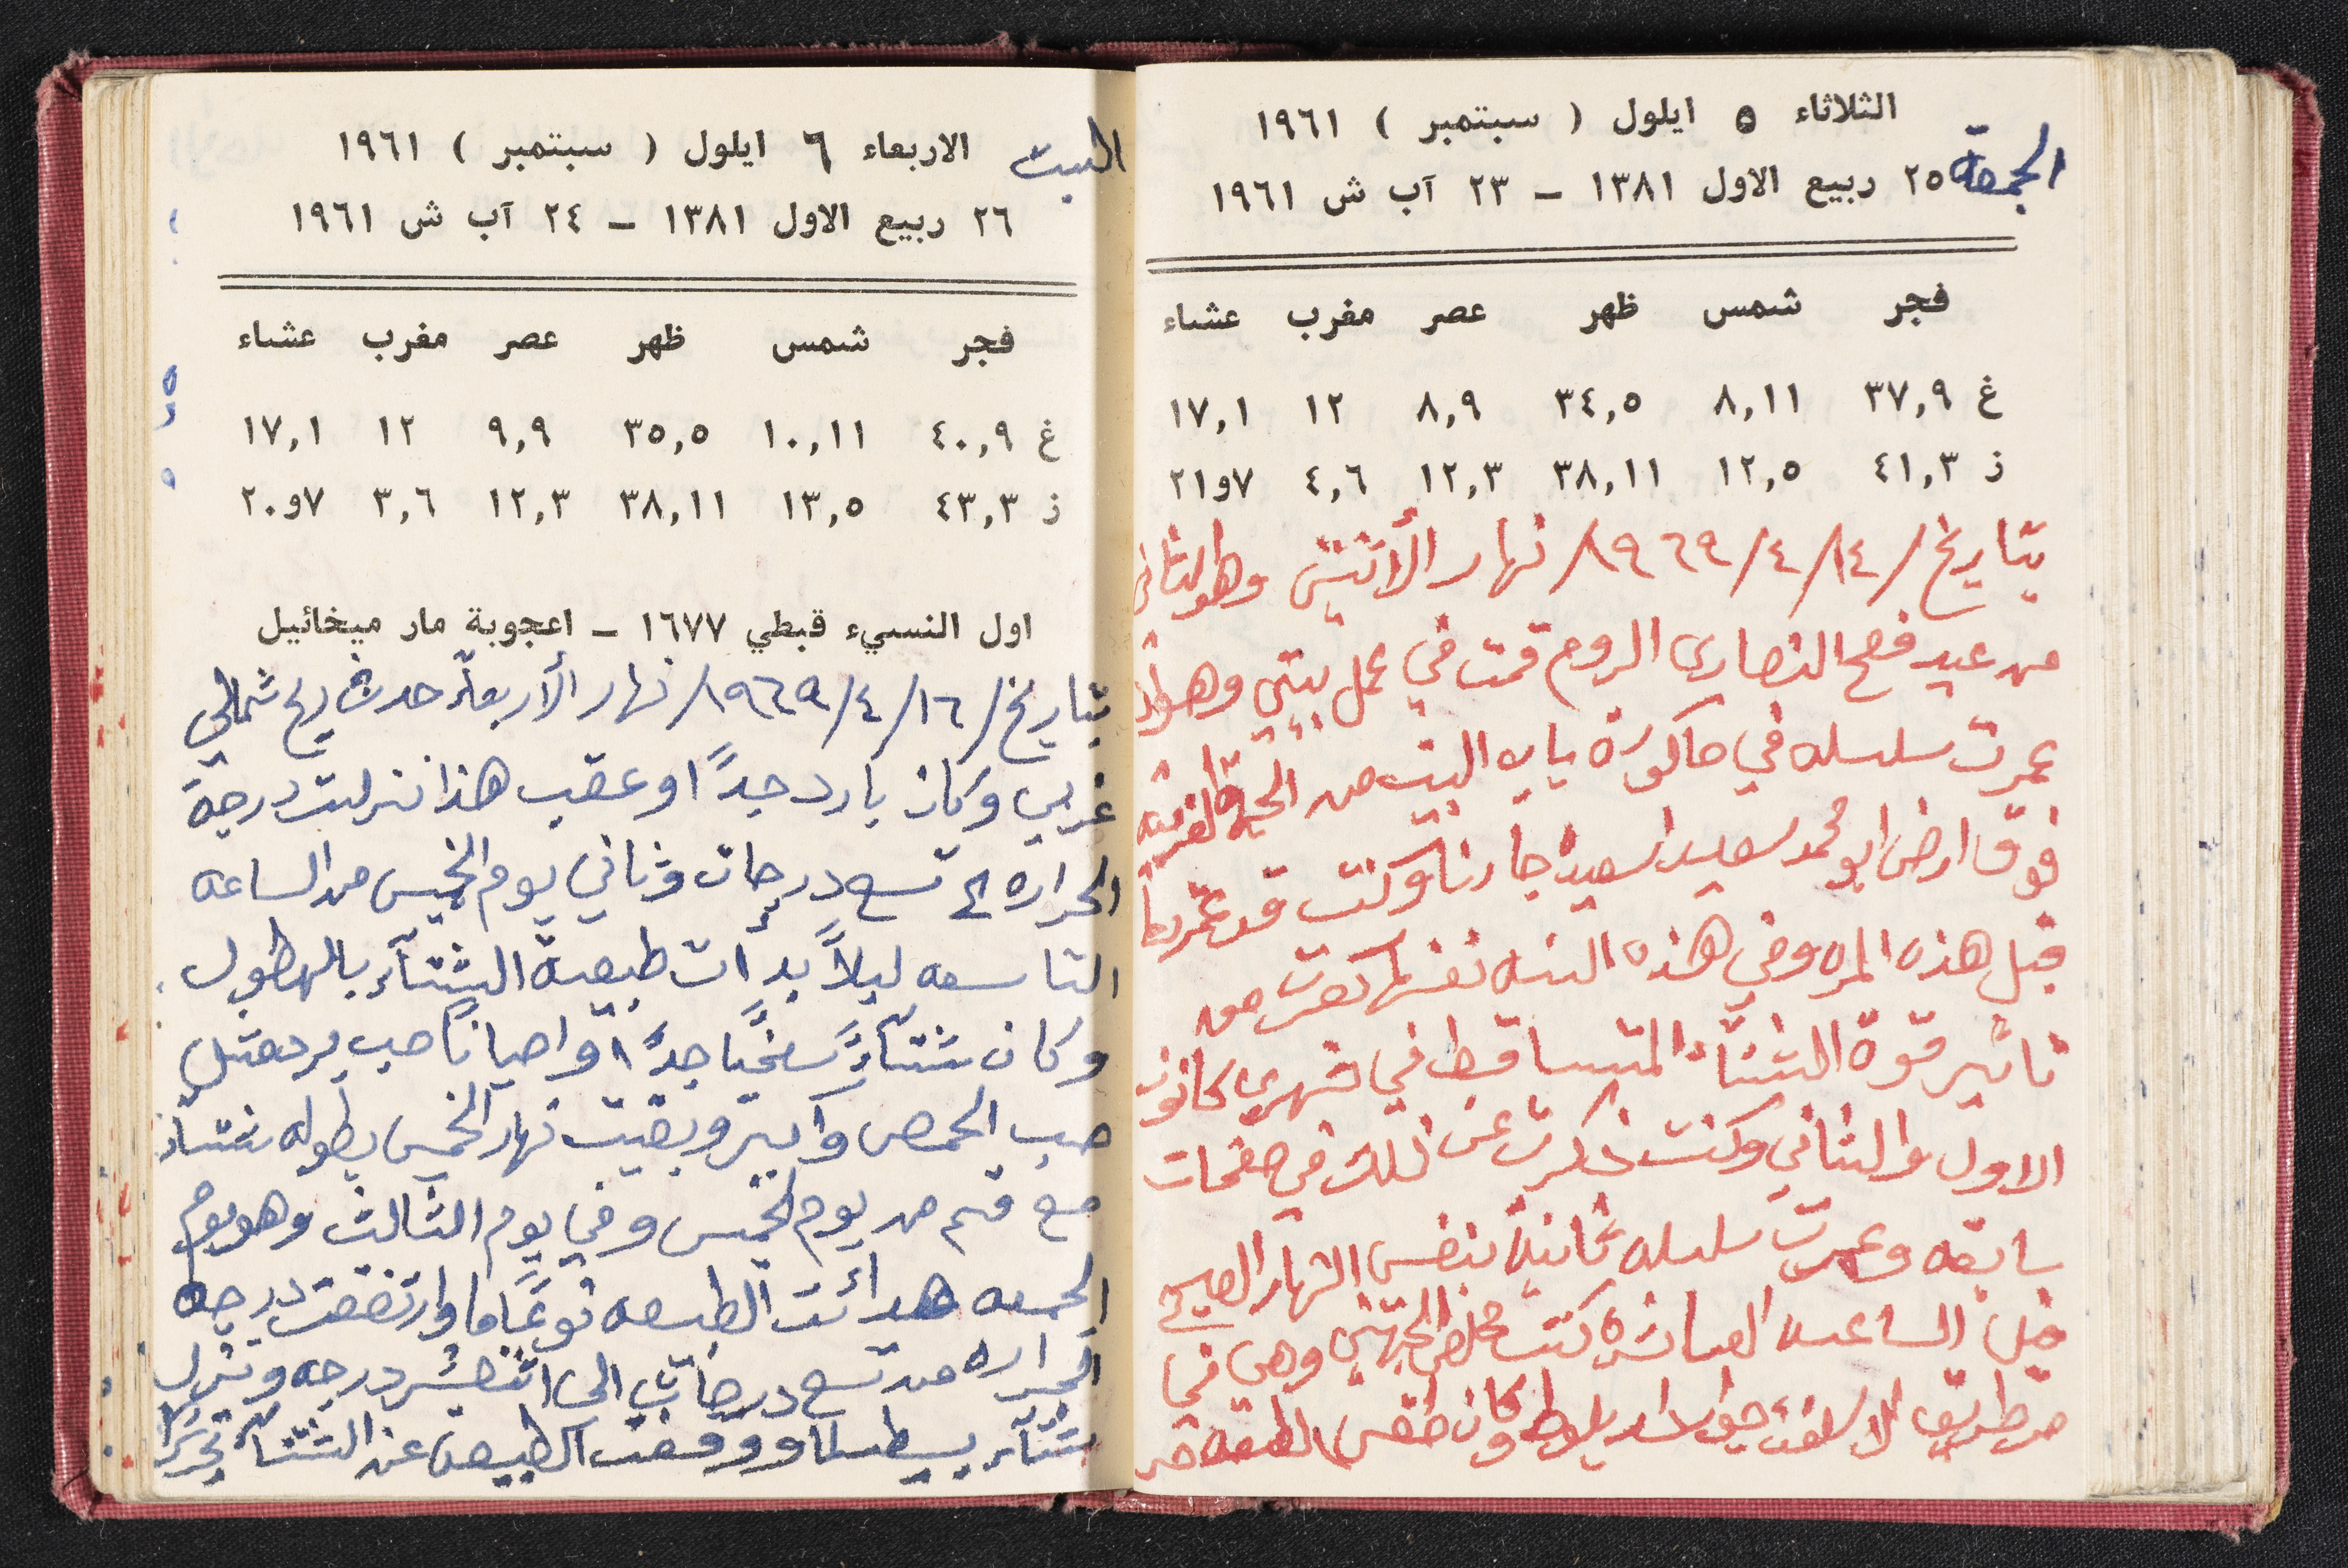 الثلاثاء ٥ ايلول ( سبتمبر ) ١٩٦١
الجمعة
٢٥ ربيع الاول ١٣٨١ – ٢٣ آب ش ١٩٦١
فجر شمس ظهر عصر مغرب عشاء
غ ٣٧,٩ ٨,١١ ٣٤,٥ ٨,٩ ١٢ ١٧,١
ز ٤١,٣ ١٢,٥ ٣٨,١١ ١٢,٣ ٤,٦ ٧و٢١
بتاريخ /١٤/ ٤/ ١٩٦٩/ نهار الأثنين وهو الثاني
من عيد فصح النصارى الروم قمت في عمل بيتي وهو
عمرت سلسله في حاكورة باب البيت من الجهة الغربيه
فوق ارض ابو محمد سعيد اسعيد جارنا وكنت قد عمرتها
قبل هذه المره وفي هذه السنه نفسها تعرت من
تاثير قوة الشتاء المتساقط في شهري كانون
الاول والثاني وكنت ذكرت عن ذلك في صفحات
سابقه وعمرت سلسله ثانية بنفس النهار الصبح
قبل الساعه العاشرة كنت مخلص الجهتين وهي في
من طريق بلوط وكان طقس الطبيعه
السبت
الاربعاء ٦ ايلول ( سبتمبر ) ١٩٦١
٢٦ ربيع الاول ١٣٨١ – ٢٤ آب ش ١٩٦١
فجر شمس ظهر عصر مغرب عشاء
غ ٤٠,٩ ١٠,١١ ٣٥,٥ ٩,٩ ١٢ ١٧,١
ز ٤٣,٣ ١٣,٥ ٣٨,١١ ١٢,٣ ٣,٦ ٧و٢٠
اول النسيء قبطي ١٦٧٧ – اعجوبة مار ميخائيل
بتاريخ /١٦/ ٤/ ١٩٦٩/ نهار الأربعاء حدث ريح شمالي
غربي وكان بارد جداً وعقب هذا نزلت درجة
الحراره الى تسع درجات وثاني يوم الخميس من الساعه
التاسعه ليلاً بدأت طبيعة الشتآء بالهطول
وكان شتآءً سخيًا جدًا واحيانًا حب برد مثل
حب الحمص واكبر وبقيت نهار الخميس بطوله شتاء
مع قسم من يوم الخميس وفي يوم الثالث وهو يوم
الجمعه هدائت الطبيعه نوعًا ما وارتفعت درجه
الحراره من تسع درجات الى اثنعشر درجه ونزل
شتآء بسيطا ووقفت الطبيعه عن الشتآء